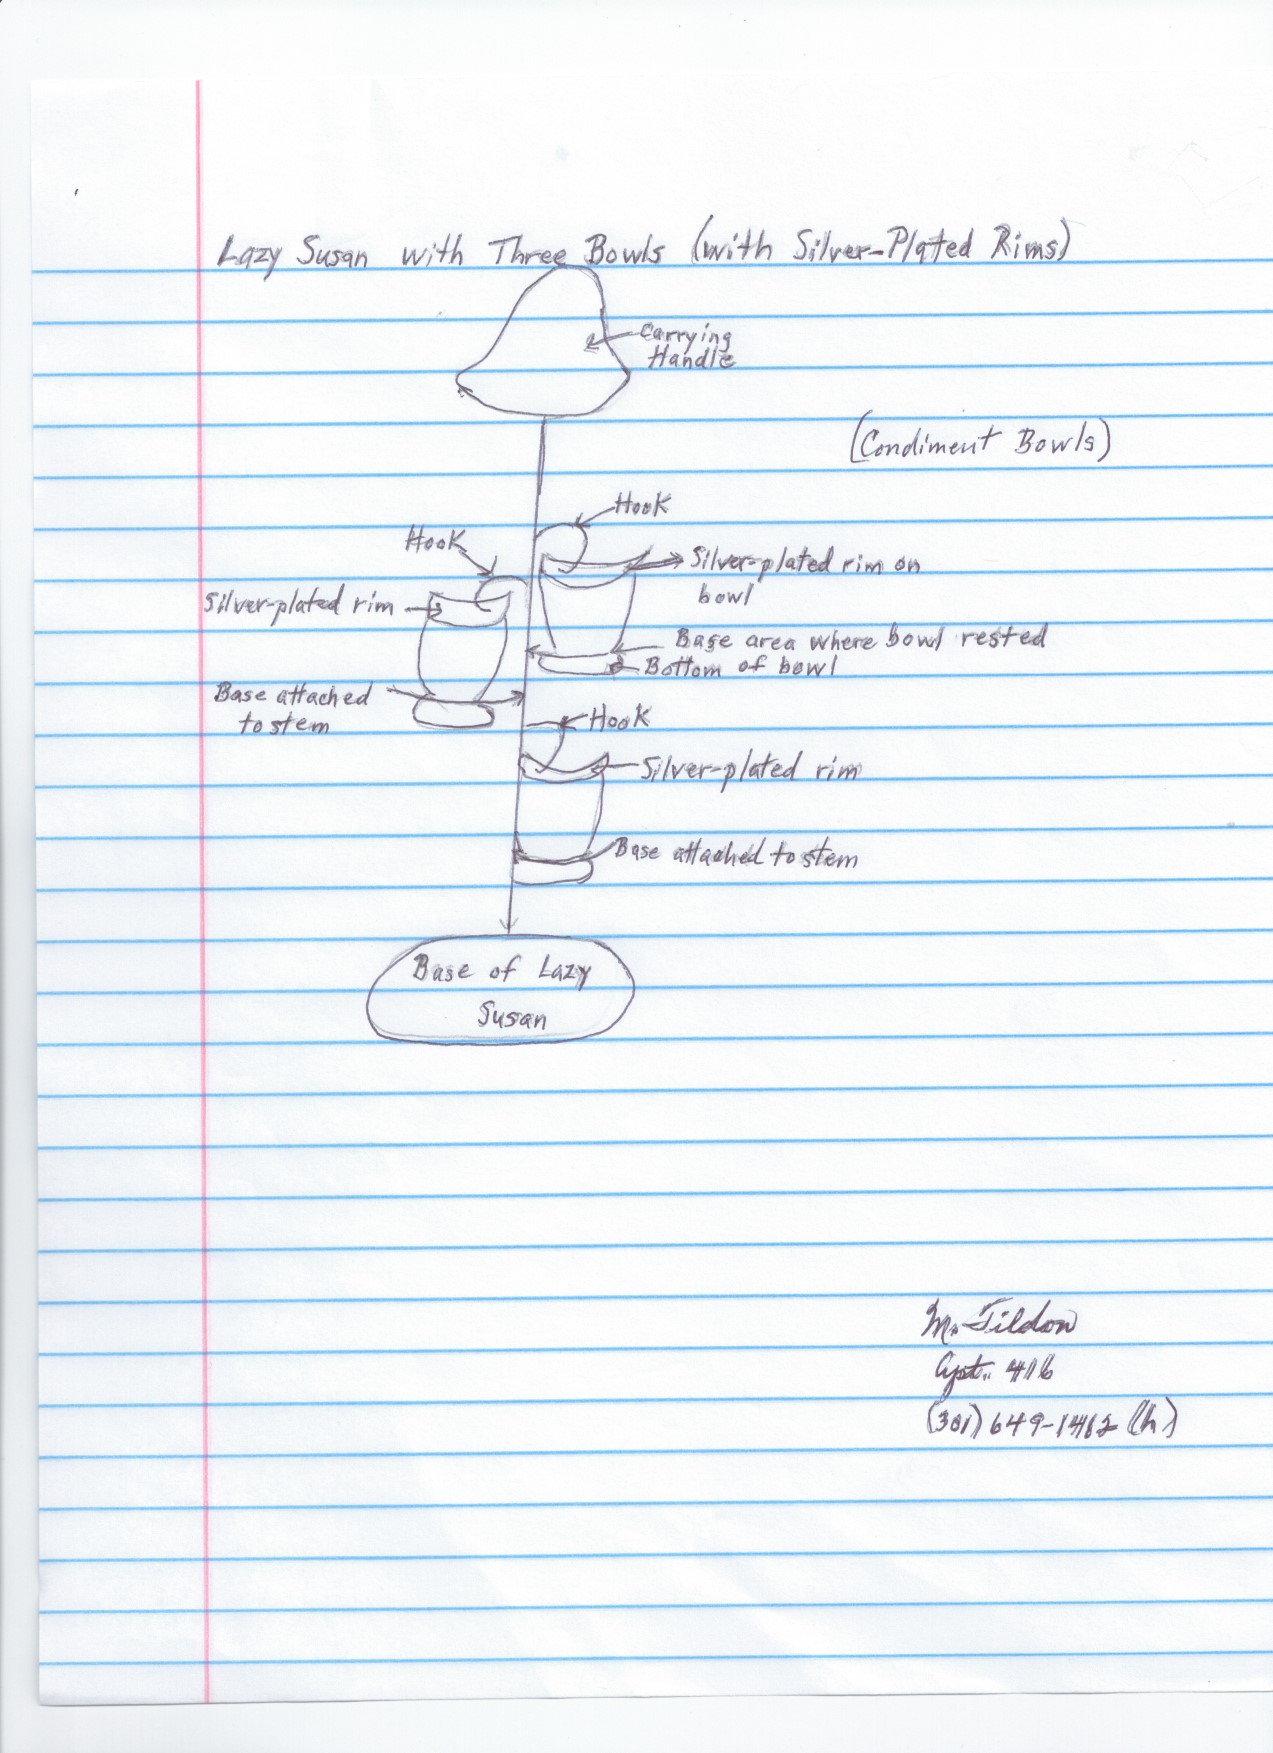 Lazy Susan with Three Bowls (with Silver-Plated Rims)
Carrying
Handle
(Condiment Bowls)
Hook
Hook
Silver-plated rim on
bowl
Silver-plated rim
Base area where bowl rested
Bottom of bowl
Base attached
to stem
Hook
Silver-plated rim
Base attached to stem
Base of Lazy
Susan
M. Tildon
Apt. 416
(301) 649-1412 (h)